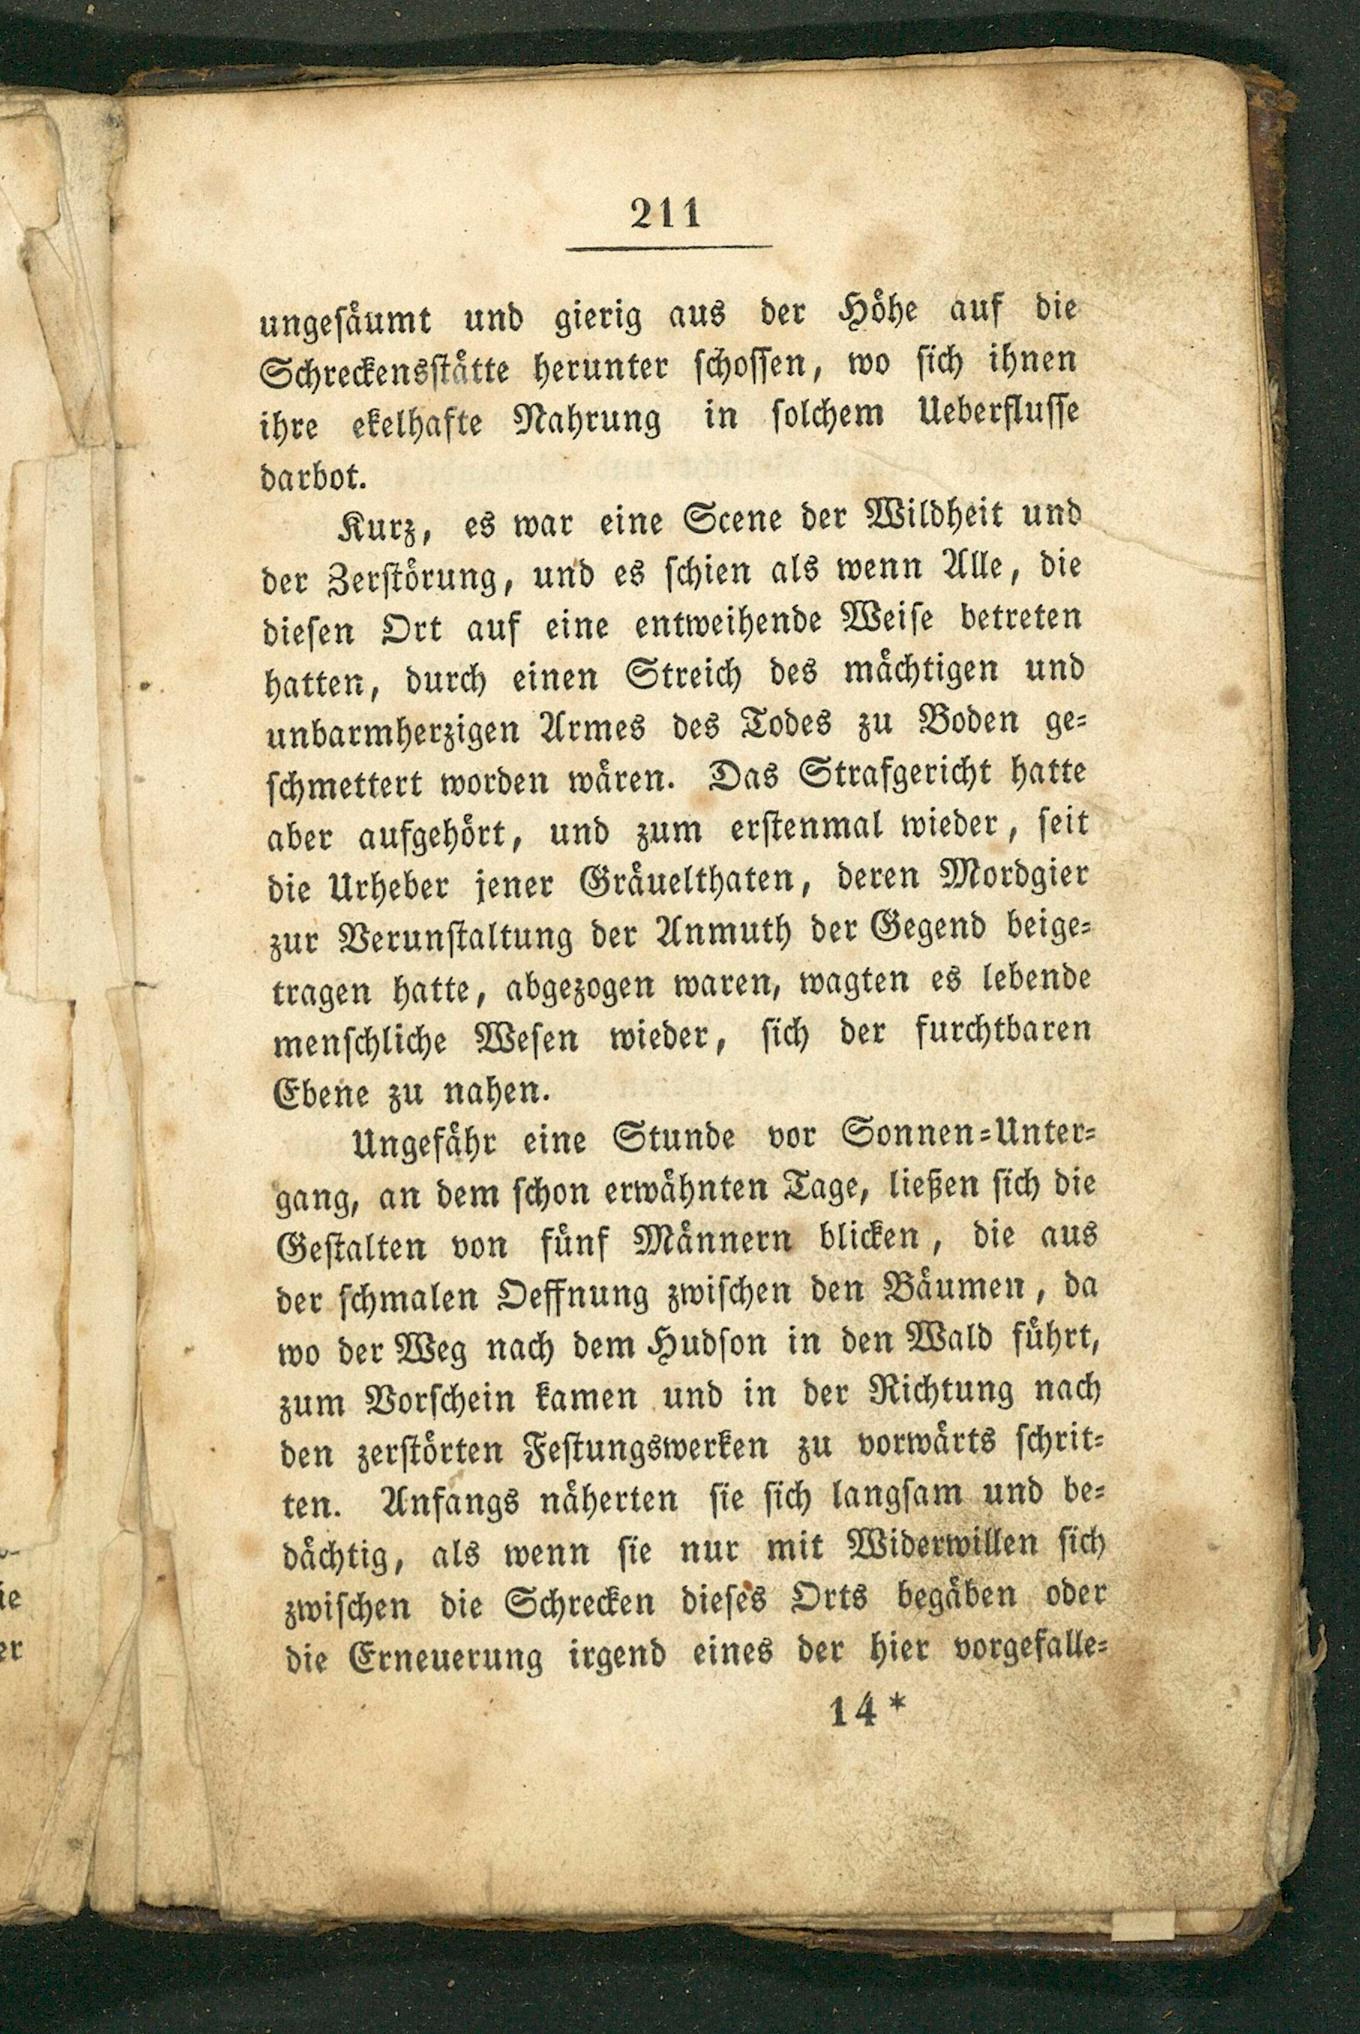 211
ungesäumt und gierig aus der Höhe auf die
Schreckensstätte herunter schossen, wo sich ihnen
ihre ekelhafte Nahrung in solchem Ueberflusse
darbot.
Kurz, es war eine Scene der Wildheit und
der Zerstörung, und es schien als wenn Alle, die
diesen Ort auf eine entweihende Weise betreten
hatten, durch einen Streich des mächtigen und
unbarmherzigen Armes des Todes zu Boden ge-
schmettert worden wären. Das Strafgericht hatte
aber aufgehört, und zum erstenmal wieder, seit
die Urheber jener Gräuelthaten, deren Mordgier
zur Verunstaltung der Anmuth der Gegend beige-
tragen hatte, abgezogen waren, wagten es lebende
menschliche Wesen wieder, sich der furchtbaren
Ebene zu nahen.
Ungefähr eine Stunde vor Sonnen-Unter-
gang, an dem schon erwähnten Tage, ließen sich die
Gestalten von fünf Männern blicken, die aus
der schmalen Oeffnung zwischen den Bäumen, da
wo der Weg nach dem Hudson in den Wald führt,
zum Vorschein kamen und in der Richtung nach
den zerstörten Festungswerken zu vorwärts schrit-
ten. Anfangs näherten sie sich langsam und be-
dächtig, als wenn sie nur mit Widerwillen sich
zwischen die Schrecken dieses Orts begäben oder
die Erneuerung irgend eines der hier vorgefalle-
14*